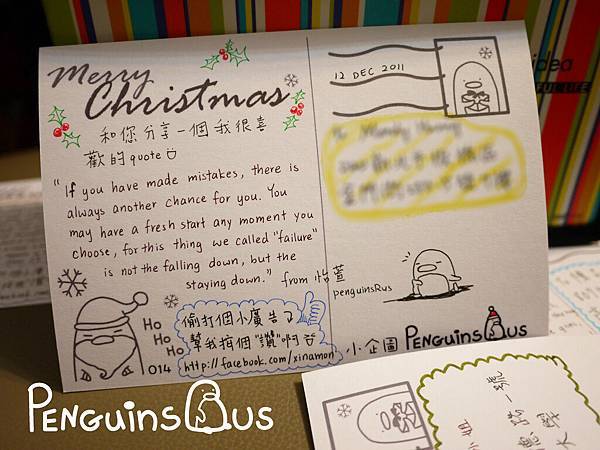 Merry
Christmas
和您分享一個我很喜
歡的quote
"If you have made mistakes, there is
always another chance for you. You
may have a fresh start any moment you
choose, for this thing we called "failure"
is not the falling down, but the
staying down." from 怡萱
Ho
Ho
Ho
014
偷打個小廣告
幫我按個"讚"啊
http://facebook.com/xinamon
12 DEC 2011
penguinsRus
小企圖 PENGUINS US
idea
FUL LIFE
PENGUINS US